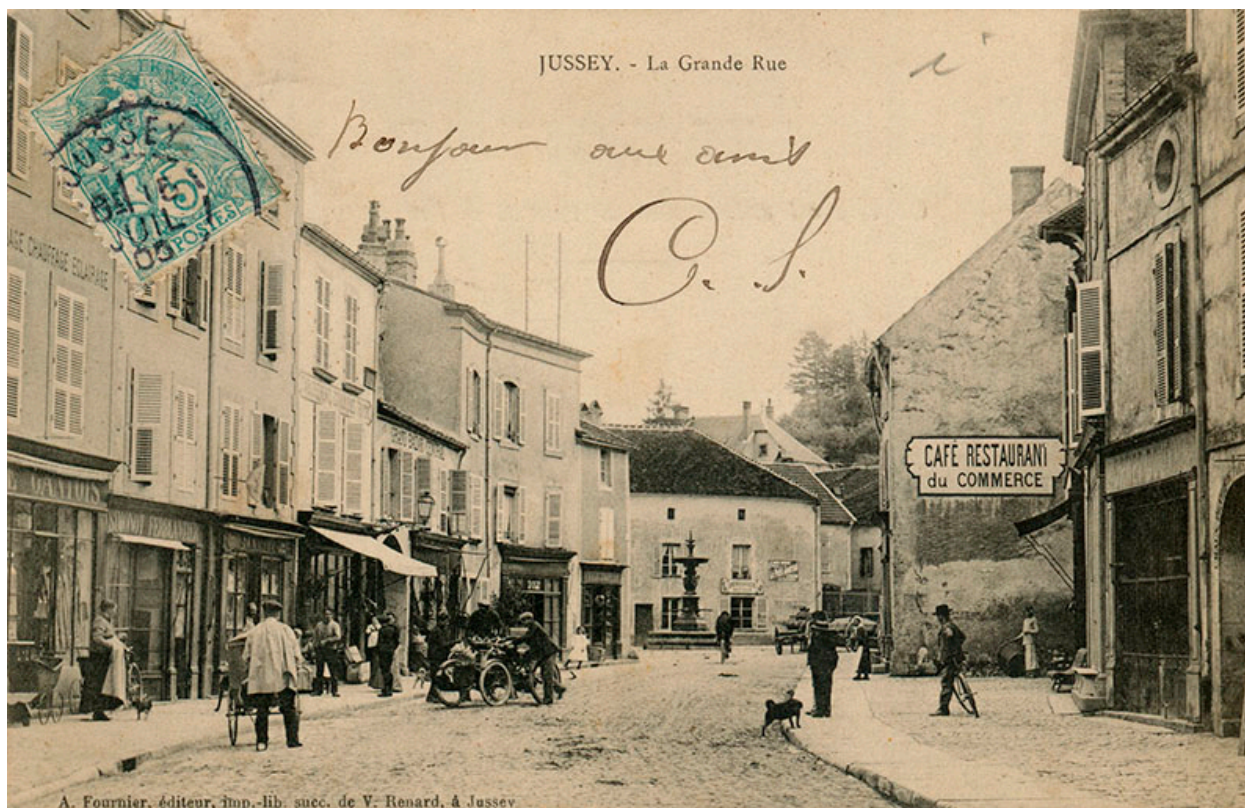 JUSSEY. - La Grande Rue
Bonjour aux amis
C. S.
JUSSEY
JUIL
03
5
POSTES
CHAUFFAGE ECLAIRAGE
CAFÉ RESTAURANT
du COMMERCE
A. Fournier, éditeur, imp.-lib. succ. de V. Renard, à Jussey